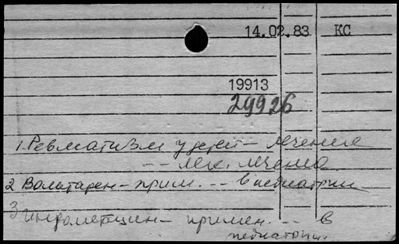 14.02.83 КС
19913
29926
1. Ревматизм у детей – лечение
-- лек. лечение
2 Вольтарен – прим. -- в педиатрии
3 Индометацин – примен. -- в
педиатрии.